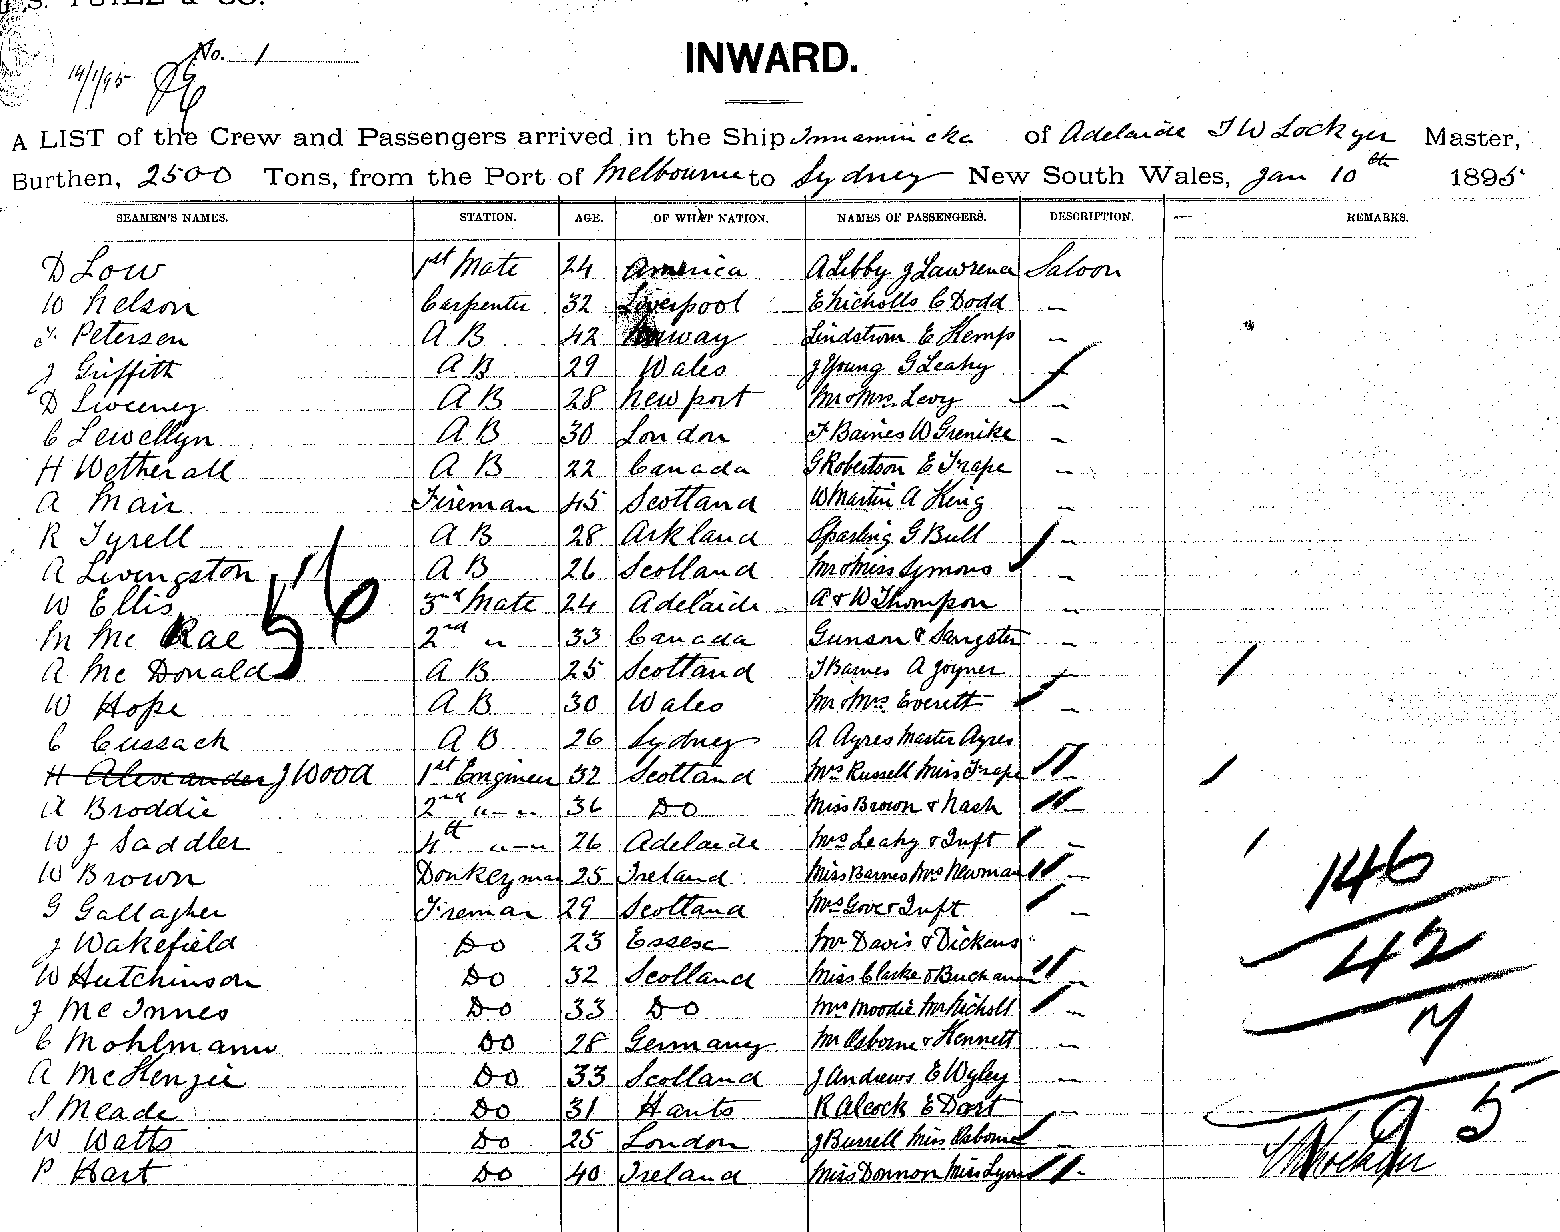 S. YUILL & CO.
No. 1
14/1/95
INWARD.
A LIST of the Crew and Passengers arrived in the Ship Innamincka of Adelaide T W Lockyer Master,
Burthen, 2500 Tons, from the Port of Melbourne to Sydney New South Wales, Jan 10th 1895
SEAMEN'S NAMES. STATION. AGE. OF WHAT NATION. NAMES OF PASSENGERS. DESCRIPTION. REMARKS.
D Low 1st Mate 24 America A Libby J Lawrence Saloon
W Nelson Carpenter 32 Liverpool E Nicholls C Dodd
F Petersen A B 42 Norway Lindstrom E Kemp
J Griffith A B 29 Wales J Young G Leahy
D Sweeney A B 28 Newport Mr & Mrs Levy
C Lewellyn A B 30 London F Baines W Grenike
H Wetherall A B 22 Canada G Robertson E Trape
A Mair Fireman 45 Scotland W Martin A King
R Tyrell A B 28 Arkland Sparling G Bull
A Livingston A B 26 Scotland Mr & Miss Symons
W Ellis 3rd Mate 24 Adelaide A & W Thompson
M Mc Rae 2nd " 33 Canada Gunson & Sangster
A Mc Donald A B 25 Scotland T Barnes A Joyner
W Hope A B 30 Wales Mr & Mrs Everett
C Cussack A B 26 Sydney A Ayres Master Ayres
H Alexander J Wood 1st Engineer 32 Scotland Mrs Russell Miss Trape
A Broddie 2nd " " 36 Do Miss Brown & Nash
W J Saddler 4th " " 26 Adelaide Mrs Leahy & Tuft
W Brown Donkeyman 25 Ireland Miss Barnes Mrs Newman
G Gallagher Fireman 29 Scotland Mrs Gove & Tuft
J Wakefield Do 23 Essex Mr Davis & Dickens
W Hutchinson Do 32 Scotland Miss Clarke & Buchanan
J Mc Innes Do 33 Do Mrs Moodie Mr Nicholl
C Mohlmann Do 28 Germany Mr Osborne & Kennett
A McKenzie Do 33 Scotland J Andrews E Wyley
S Meade Do 31 Hants R Alcock E Dart
W Watts Do 25 London J Burrell Miss Osborne
P Hart Do 40 Ireland Miss Donnon Miss Lyons
56
146
42
7
95
T W Lockyer